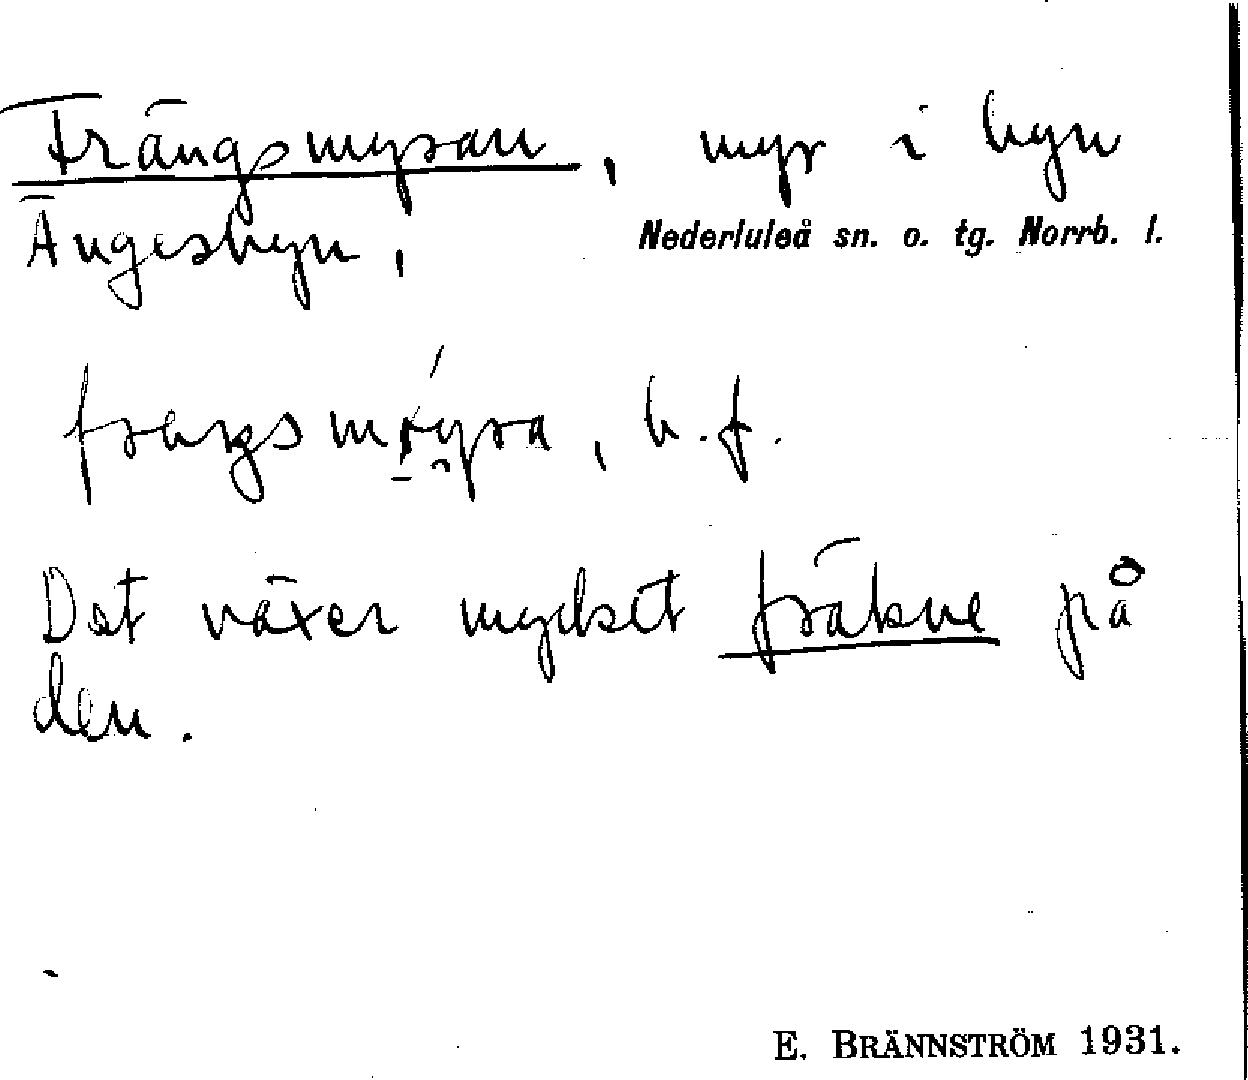 Frängsmyran, myr i byn
Ängesbyn, Nederluleå sn. o. tg. Norrb. l.
b. f.
Det växer mycket fräkne på
den.
E. BRÄNNSTRÖM 1931.